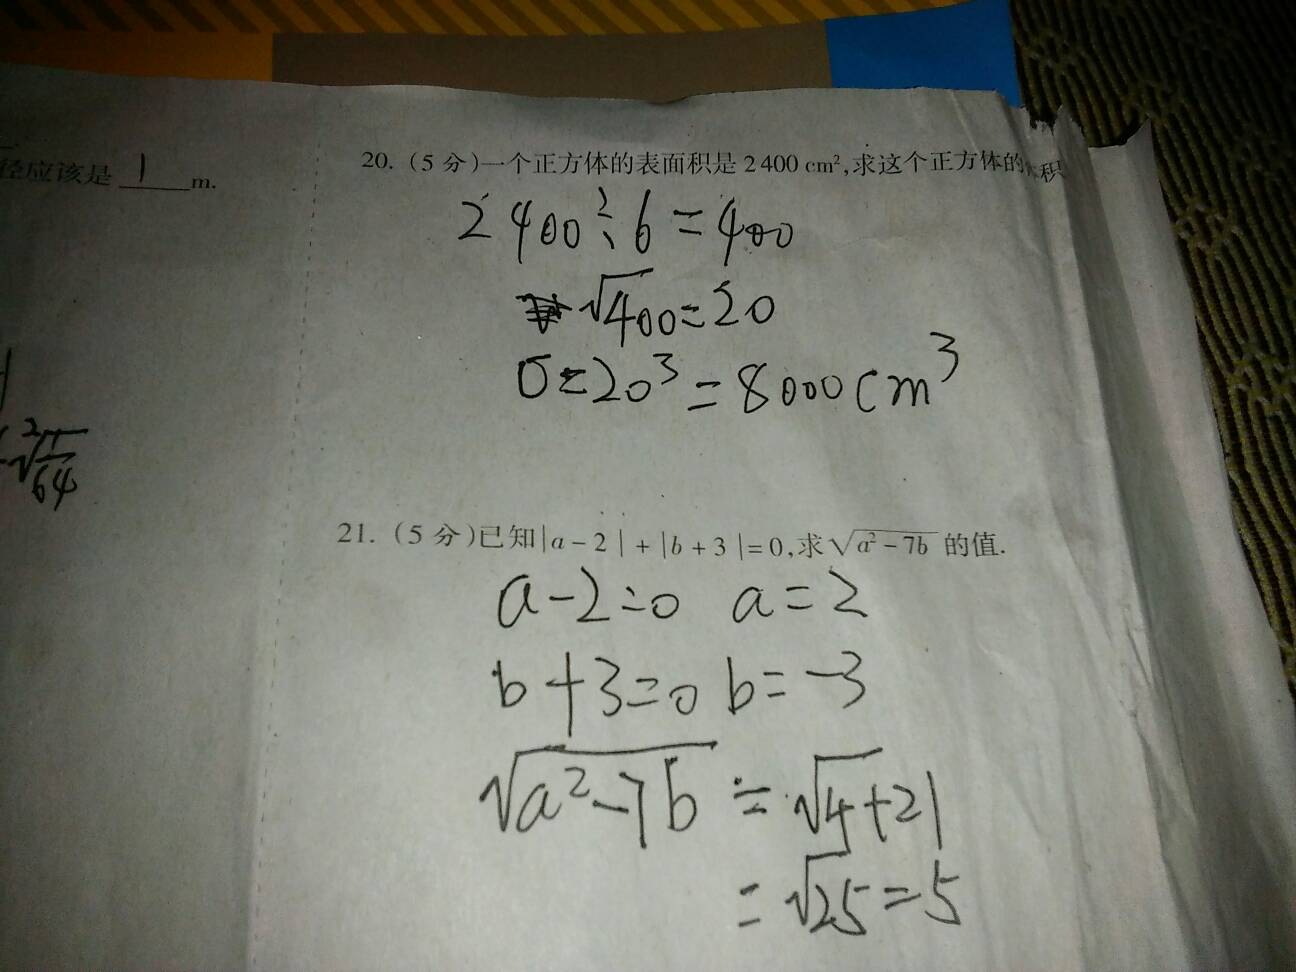 径应该是 1 m.
20. (5 分)一个正方体的表面积是 2 400 cm²,求这个正方体的体积
2400÷6=400
√400=20
20³=8000cm³
³√1/64
21. (5 分)已知|a-2|+|b+3|=0,求√a²-7b 的值.
a-2=0 a=2
b+3=0 b=-3
√a²-7b = √4+21
=√25=5